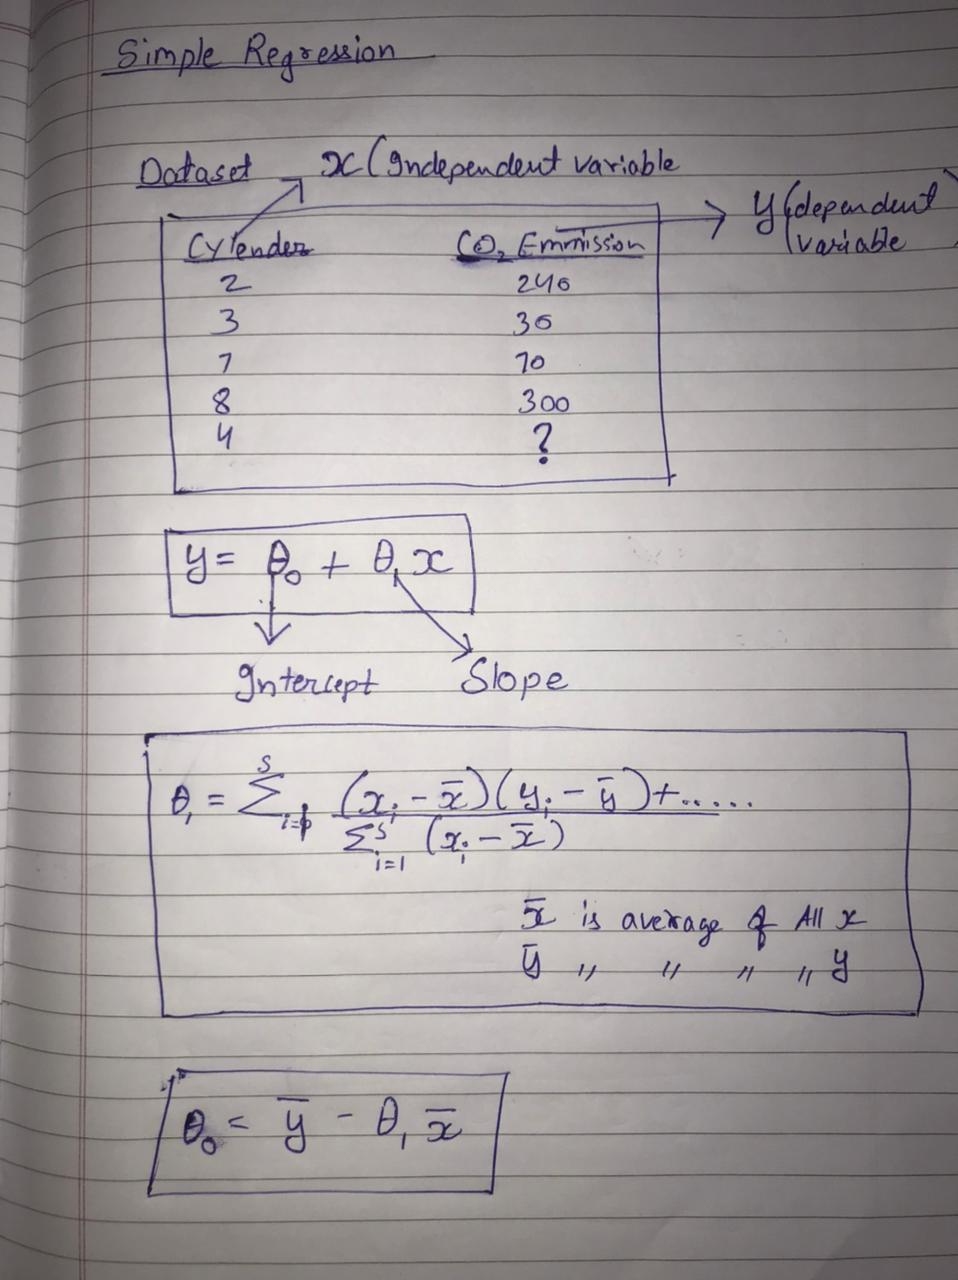 Simple Regression
Dataset x (Independent variable
y (dependent variable)
Cylender CO₂ Emmission
2 240
3 30
7 70
8 300
4 ?
y = θ₀ + θ₁ x
Intercept Slope
θ₁ = Σ^s_{i=1} (xᵢ - x̄)(yᵢ - ȳ) + ......
Σ^s_{i=1} (xᵢ - x̄)
x̄ is average of All x
ȳ " " " " y
θ₀ = ȳ - θ₁ x̄